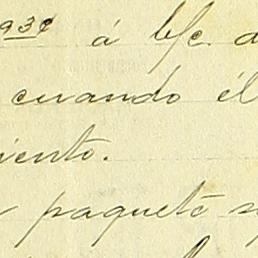 93¢ á b/c. d
cuando él
iento.
paquete